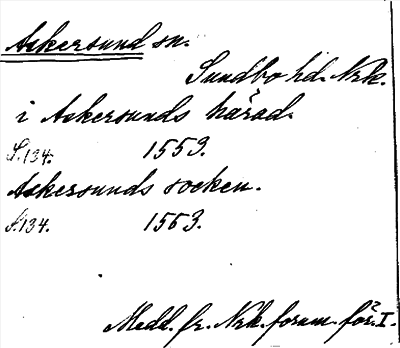 Askersund sn.
Sundbo hd. Nrk.
i Askersunds härad.
S.134. 1553.
Askersunds socken.
S.134. 1563.
Medd. fr. Nrk. fornm. för. I.